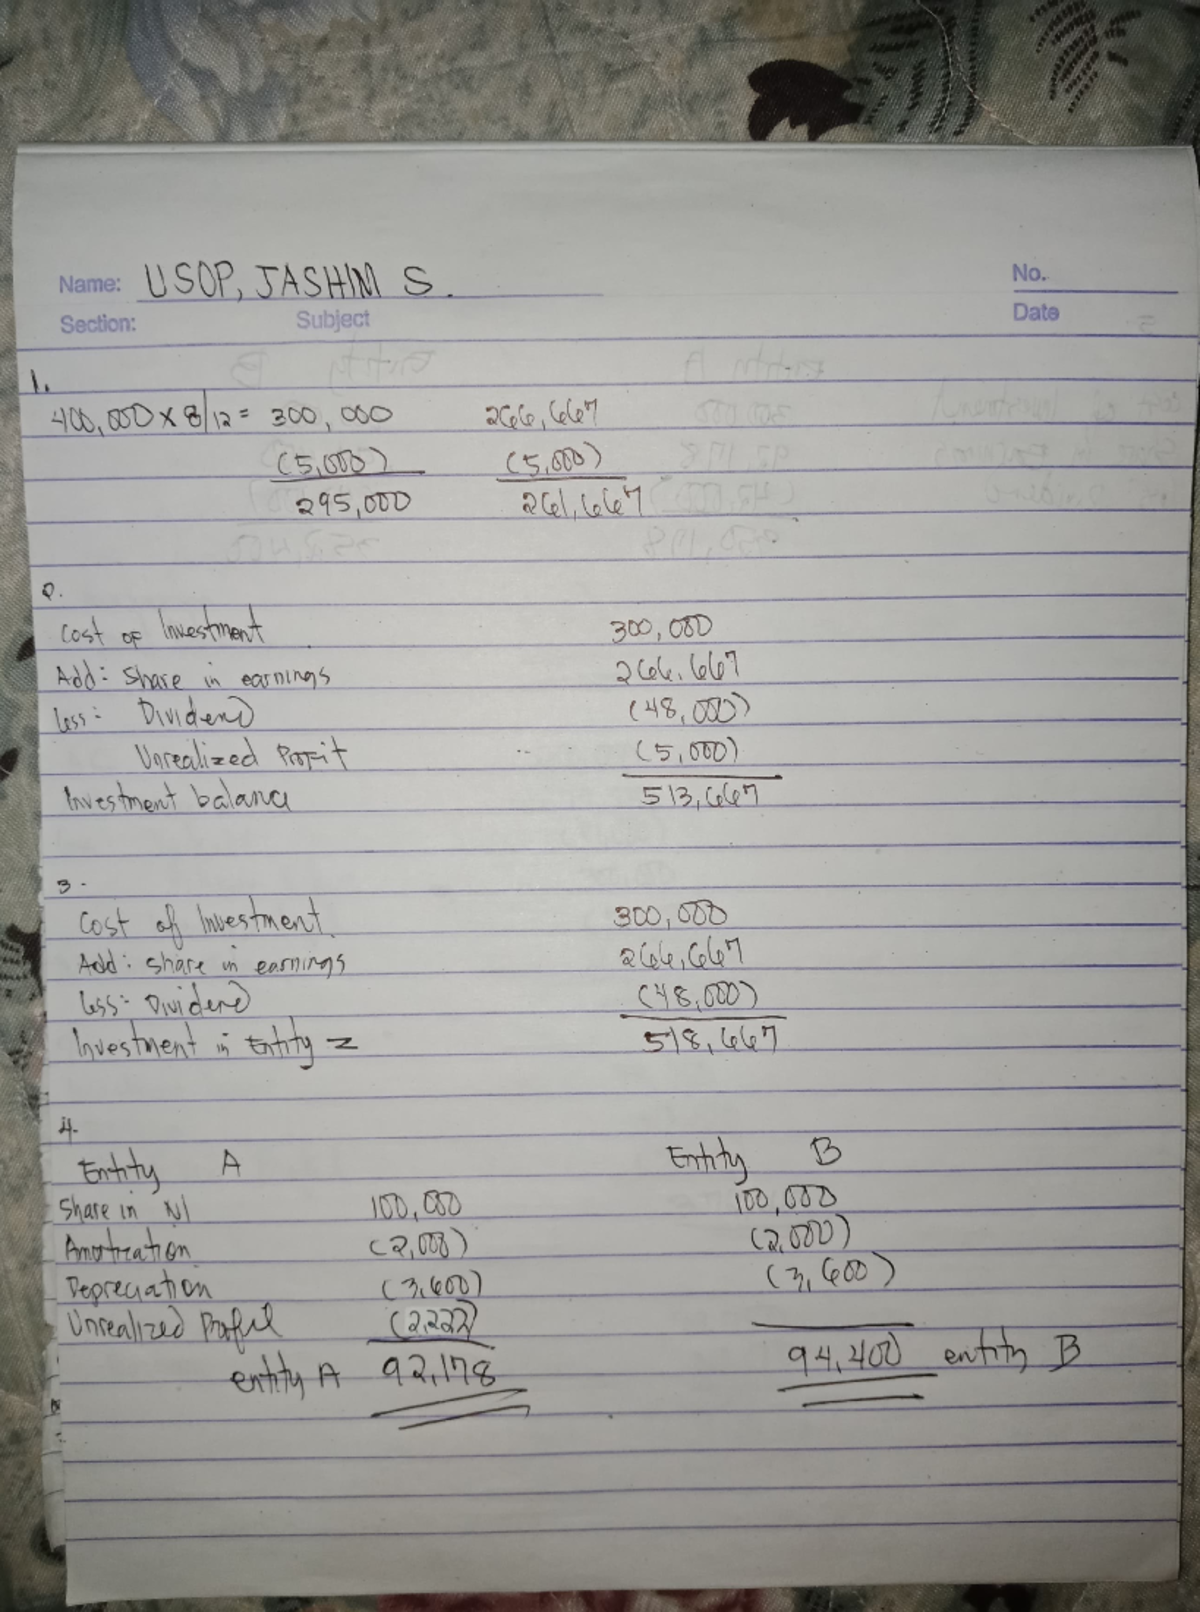 Name: USOP, JASHIM S.
No.
Section: Subject
Date
1.
400,000 x 8/12 = 300,000 266,667
(5,000) (5,000)
295,000 261,667
2.
Cost of Investment 300,000
Add: Share in earnings 266,667
less: Dividend (48,000)
Unrealized Profit (5,000)
Investment balance 513,667
3.
Cost of Investment 300,000
Add: share in earnings 266,667
less: Dividend (48,000)
Investment in Entity Z 518,667
4.
Entity A Entity B
Share in NI 100,000 100,000
Amortization (2,000) (2,000)
Depreciation (3,600) (3,600)
Unrealized Profit (2,222)
entity A 92,178 94,400 entity B